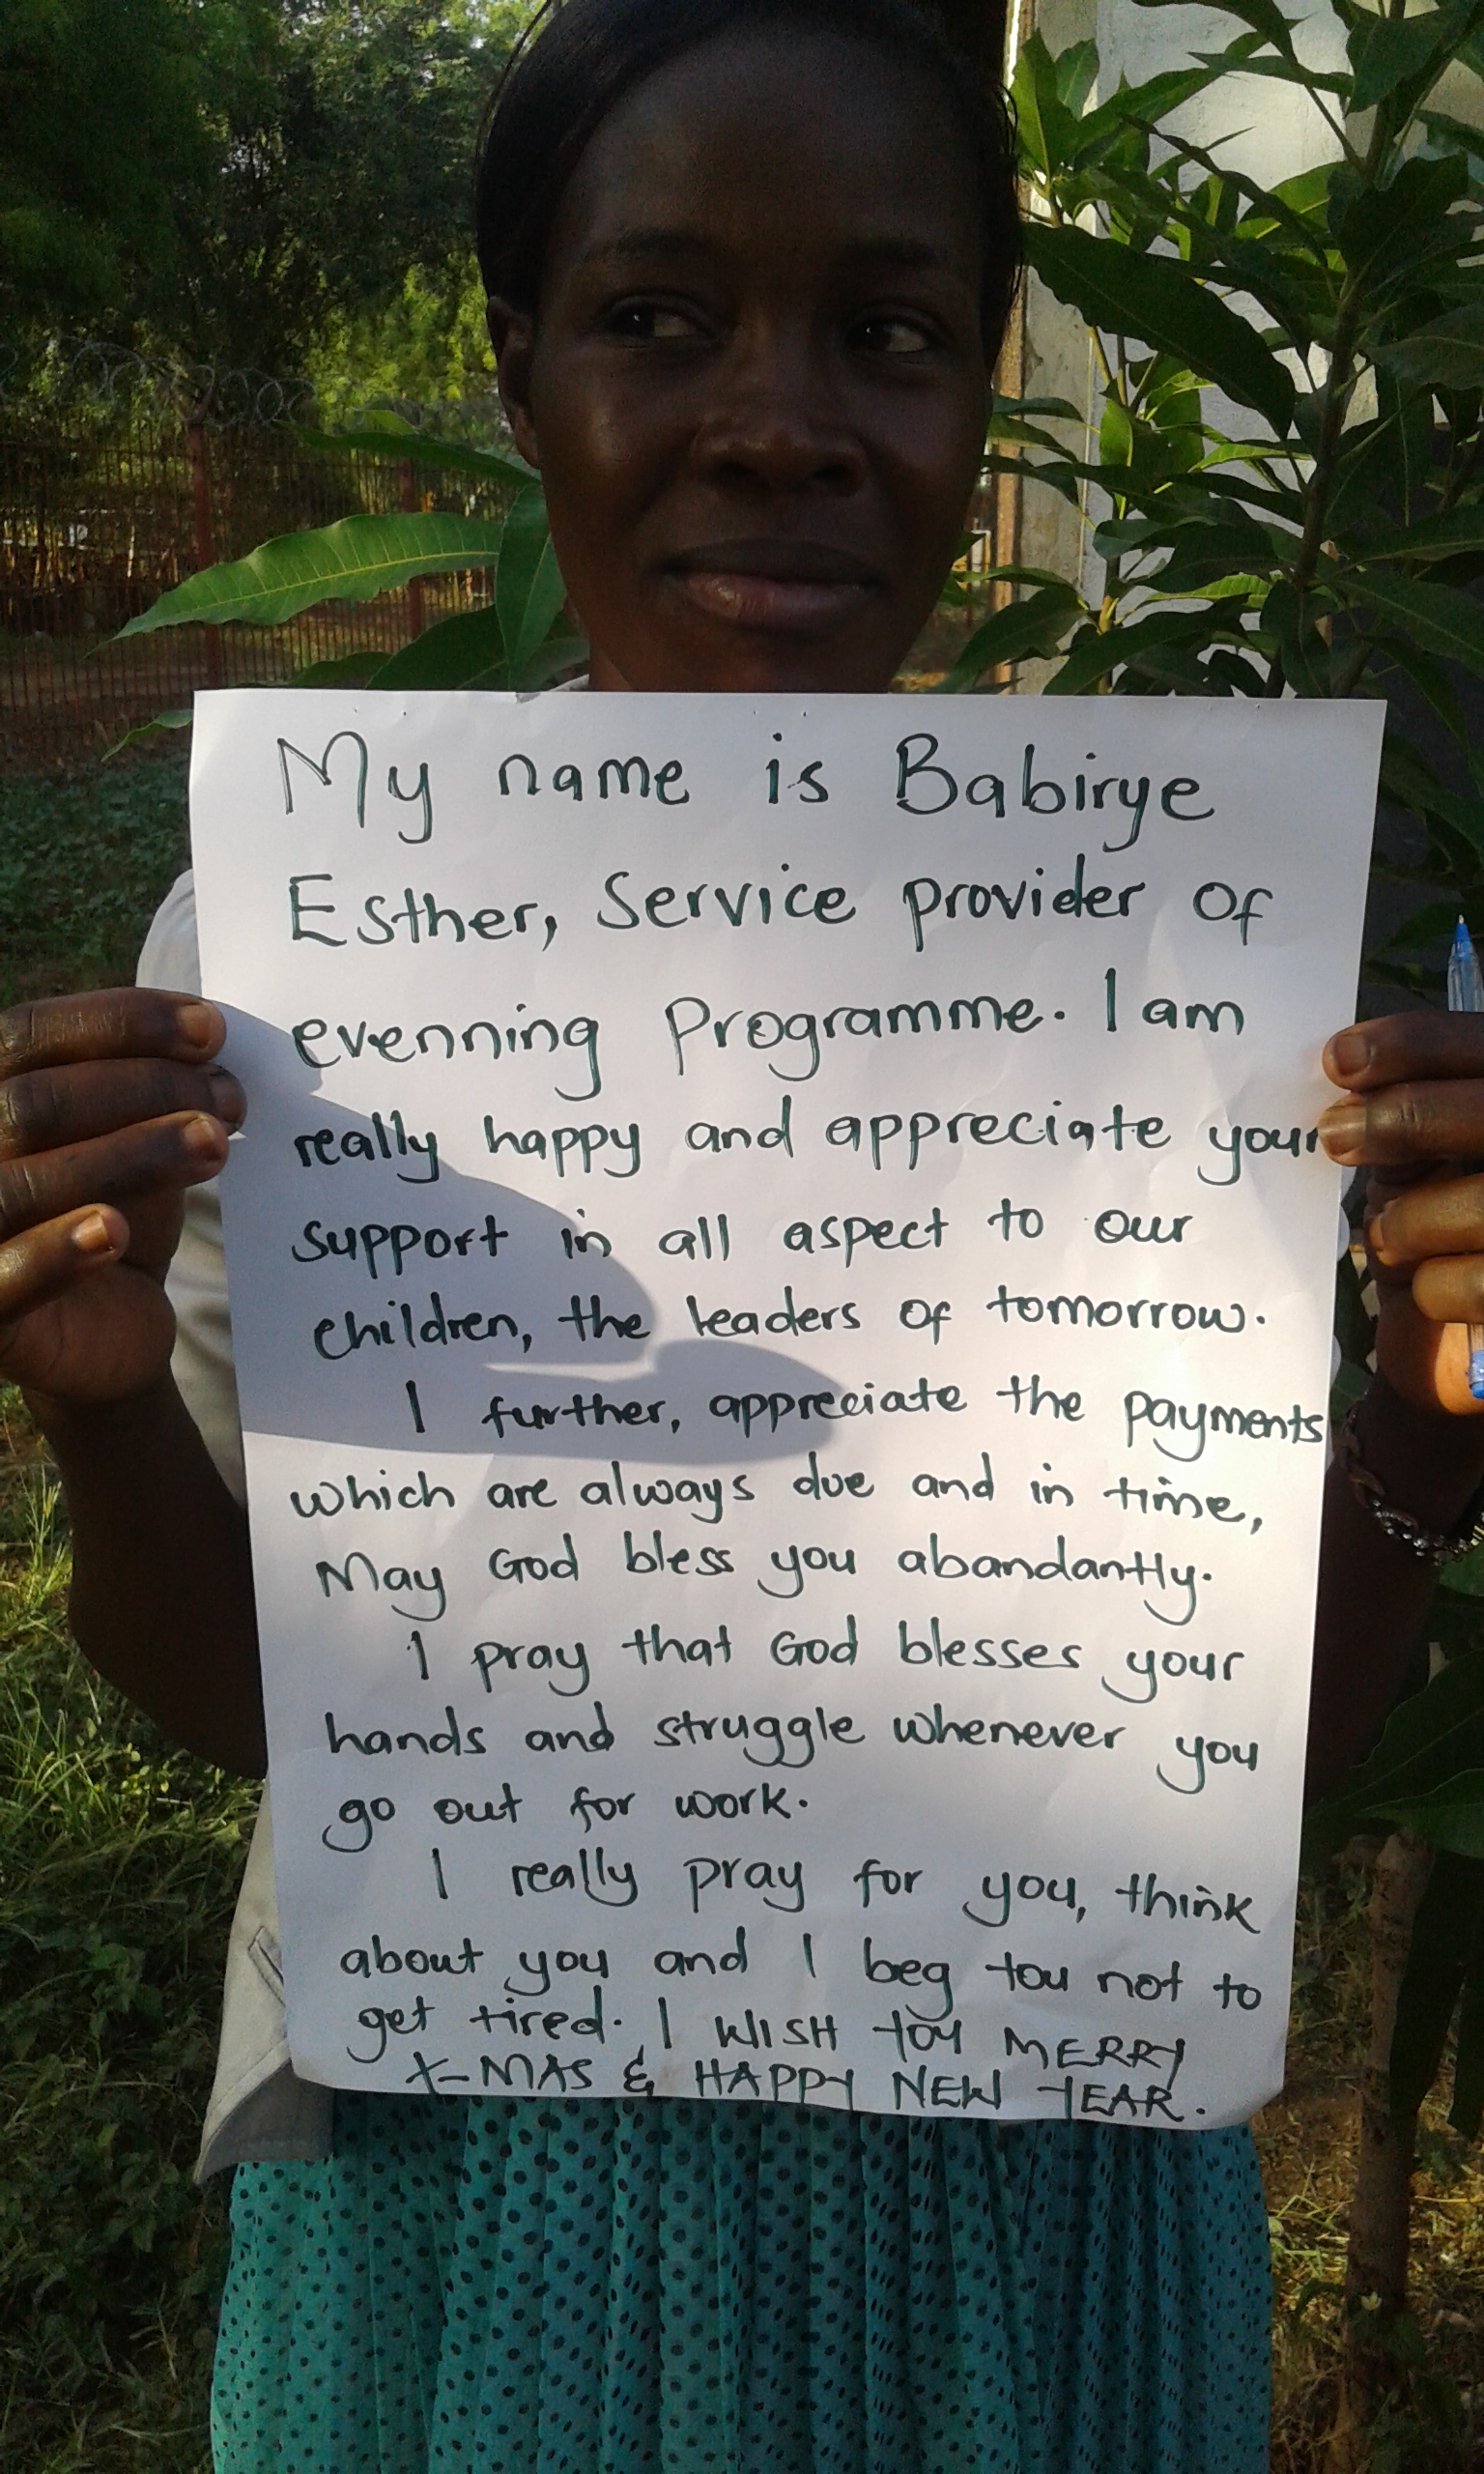 My name is Babirye
Esther, Service provider of
evenning Programme. I am
really happy and appreciate your
support in all aspect to our
children, the leaders of tomorrow.
I further, appreciate the payments
which are always due and in time,
May God bless you abandantly.
I pray that God blesses your
hands and struggle whenever you
go out for work.
I really pray for you, think
about you and I beg you not to
get tired. I WISH YOU MERRY
X-MAS & HAPPY NEW YEAR.